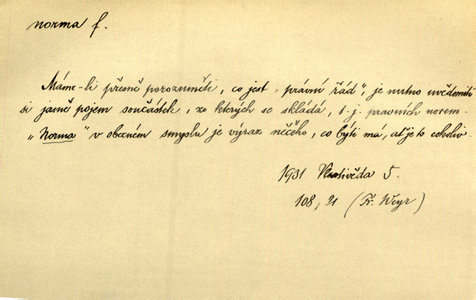 norma f.
Máme-li přesně porozuměti, co jest „právní řád“, je nutno uvědomiti
si jasně pojem součástek, ze kterých se skládá, t. j. právních norem. –
„Norma“ v obecném smyslu je výraz něčeho, co býti má, ať je to cokoliv.
1931 Vlastivěda 5.
108, 21 (Fr. Weyr)